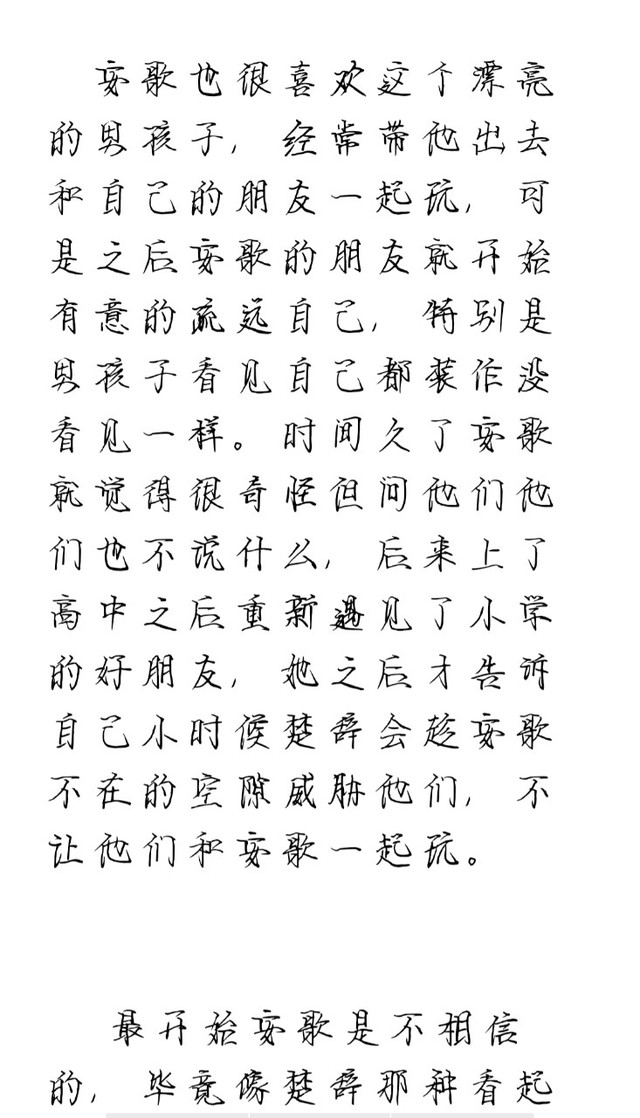 安歌也很喜欢这个漂亮
的男孩子，经常带他出去
和自己的朋友一起玩，可
是之后安歌的朋友就开始
有意的疏远自己，特别是
男孩子看见自己都装作没
看见一样。时间久了安歌
就觉得很奇怪但问他们他
们也不说什么，后来上了
高中之后重新遇见了小学
的好朋友，她之后才告诉
自己小时候楚辞会趁安歌
不在的空隙威胁他们，不
让他们和安歌一起玩。
最开始安歌是不相信
的，毕竟像楚辞那种看起